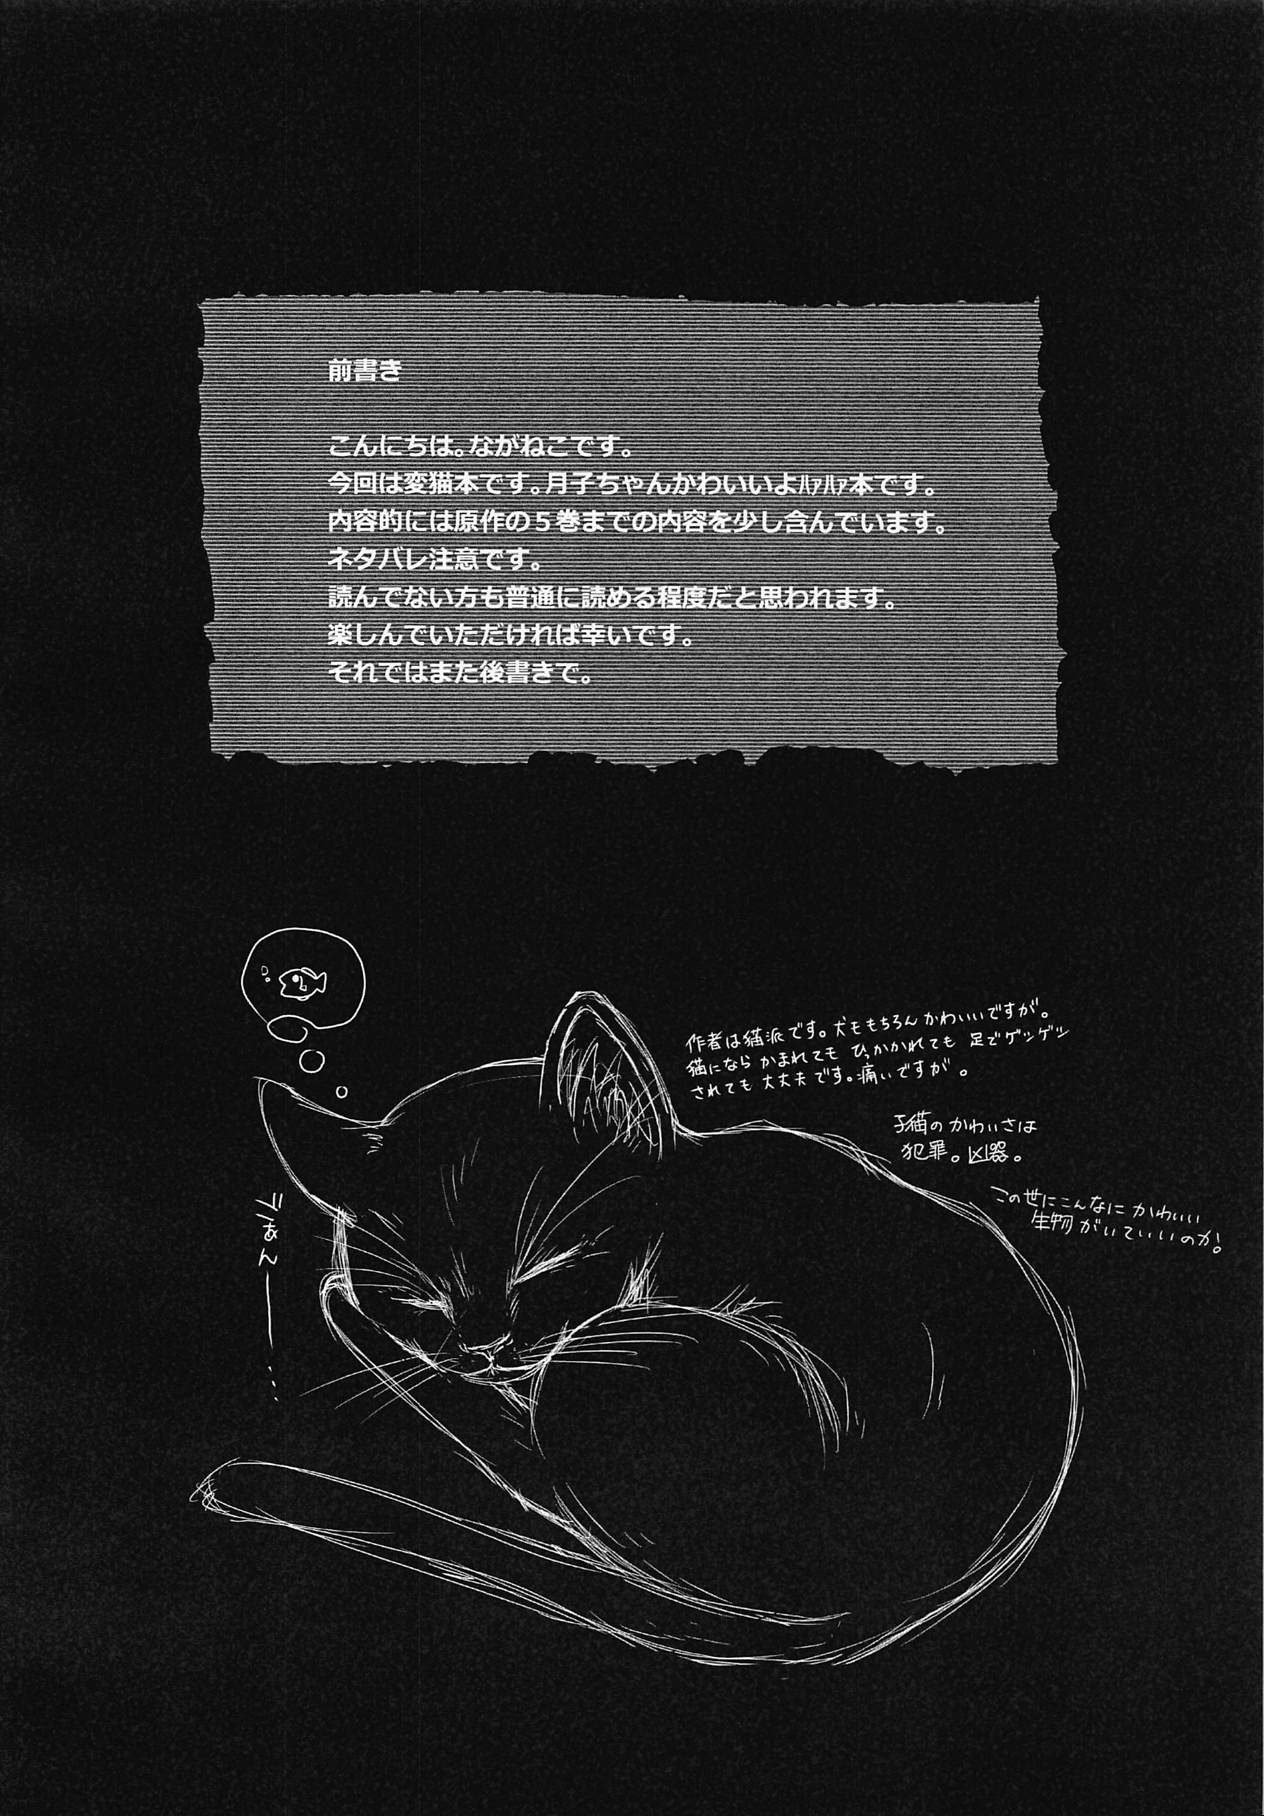 前書き
こんにちは。ながねこです。
今回は変猫本です。月子ちゃんかわいいよﾊｧﾊｧ本です。
内容的には原作の５巻までの内容を少し含んでいます。
ネタバレ注意です。
読んでない方も普通に読める程度だと思われます。
楽しんでいただければ幸いです。
それではまた後書きで。
作者は猫派です。犬ももちろんかわいいですが。
猫になら かまれても ひっかかれても 足でゲシゲシ
されても 大丈夫です。痛いですが。
子猫の かわいさは
犯罪。凶器。
この世にこんなに かわいい
生物がいていいのか。